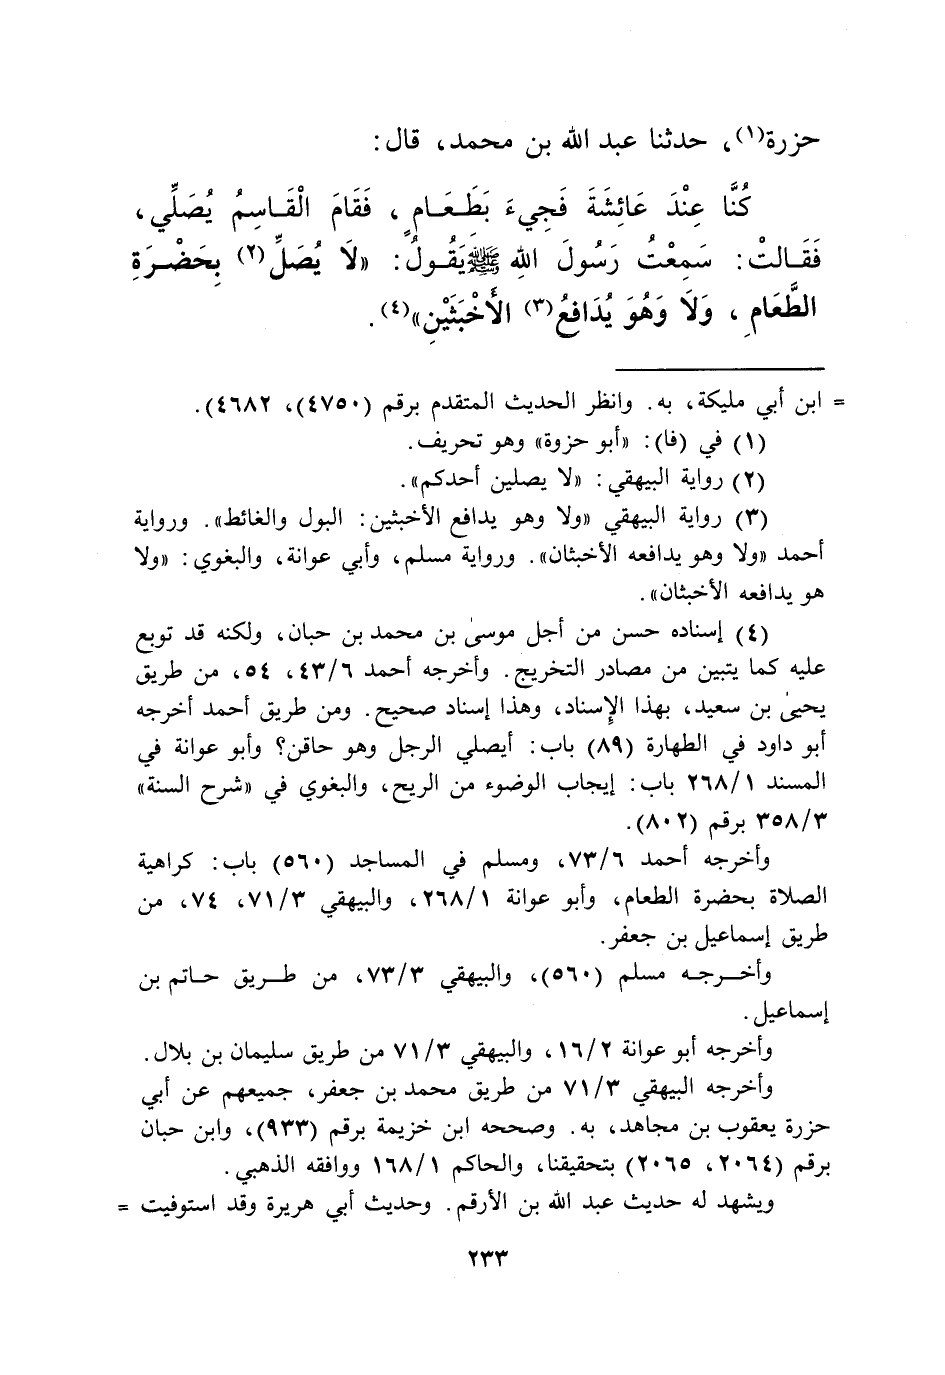 حزرة(١)، حدثنا عبد الله بن محمد، قال:
كُنَّا عِنْدَ عَائِشَةَ فَجِيءَ بَطَعَامٍ، فَقَامَ الْقَاسِمُ يُصَلِّي،
فَقَالتْ: سَمِعْتُ رَسُولَ اللهِ ﷺ يَقُولُ: «لَا يُصَلِّ(٢) بِحَضْرَةِ
الطَّعَامِ، وَلَا وَهُوَ يُدَافعُ(٣) الأَخْبَثَيْنِ»(٤).
= ابن أبي مليكة، به. وانظر الحديث المتقدم برقم (٤٧٥٠)، ٤٦٨٢).
(١) في (فا): «أبو حزوة» وهو تحريف.
(٢) رواية البيهقي: «لا يصلين أحدكم».
(٣) رواية البيهقي «ولا وهو يدافع الأخبثين: البول والغائط». ورواية
أحمد «ولا وهو يدافعه الأخبثان». ورواية مسلم، وأبي عوانة، والبغوي: «ولا
هو يدافعه الأخبثان».
(٤) إسناده حسن من أجل موسىٰ بن محمد بن حبان، ولكنه قد توبع
عليه كما يتبين من مصادر التخريج. وأخرجه أحمد ٤٣/٦، ٥٤، من طريق
يحيىٰ بن سعيد، بهذا الإسناد، وهذا إسناد صحيح. ومن طريق أحمد أخرجه
أبو داود في الطهارة (٨٩) باب: أيصلي الرجل وهو حاقن؟ وأبو عوانة في
المسند ٢٦٨/١ باب: إيجاب الوضوء من الريح، والبغوي في «شرح السنة»
٣٥٨/٣ برقم (٨٠٢).
وأخرجه أحمد ٧٣/٦، ومسلم في المساجد (٥٦٠) باب: كراهية
الصلاة بحضرة الطعام، وأبو عوانة ٢٦٨/١، والبيهقي ٧١/٣، ٧٤، من
طريق إسماعيل بن جعفر.
وأخرجه مسلم (٥٦٠)، والبيهقي ٧٣/٣، من طريق حاتم بن
إسماعيل.
وأخرجه أبو عوانة ١٦/٢، والبيهقي ٧١/٣ من طريق سليمان بن بلال.
وأخرجه البيهقي ٧١/٣ من طريق محمد بن جعفر، جميعهم عن أبي
حزرة يعقوب بن مجاهد، به. وصححه ابن خزيمة برقم (٩٣٣)، وابن حبان
برقم (٢٠٦٤، ٢٠٦٥) بتحقيقنا، والحاكم ١٦٨/١ ووافقه الذهبي.
ويشهد له حديث عبد الله بن الأرقم. وحديث أبي هريرة وقد استوفيت =
٢٣٣